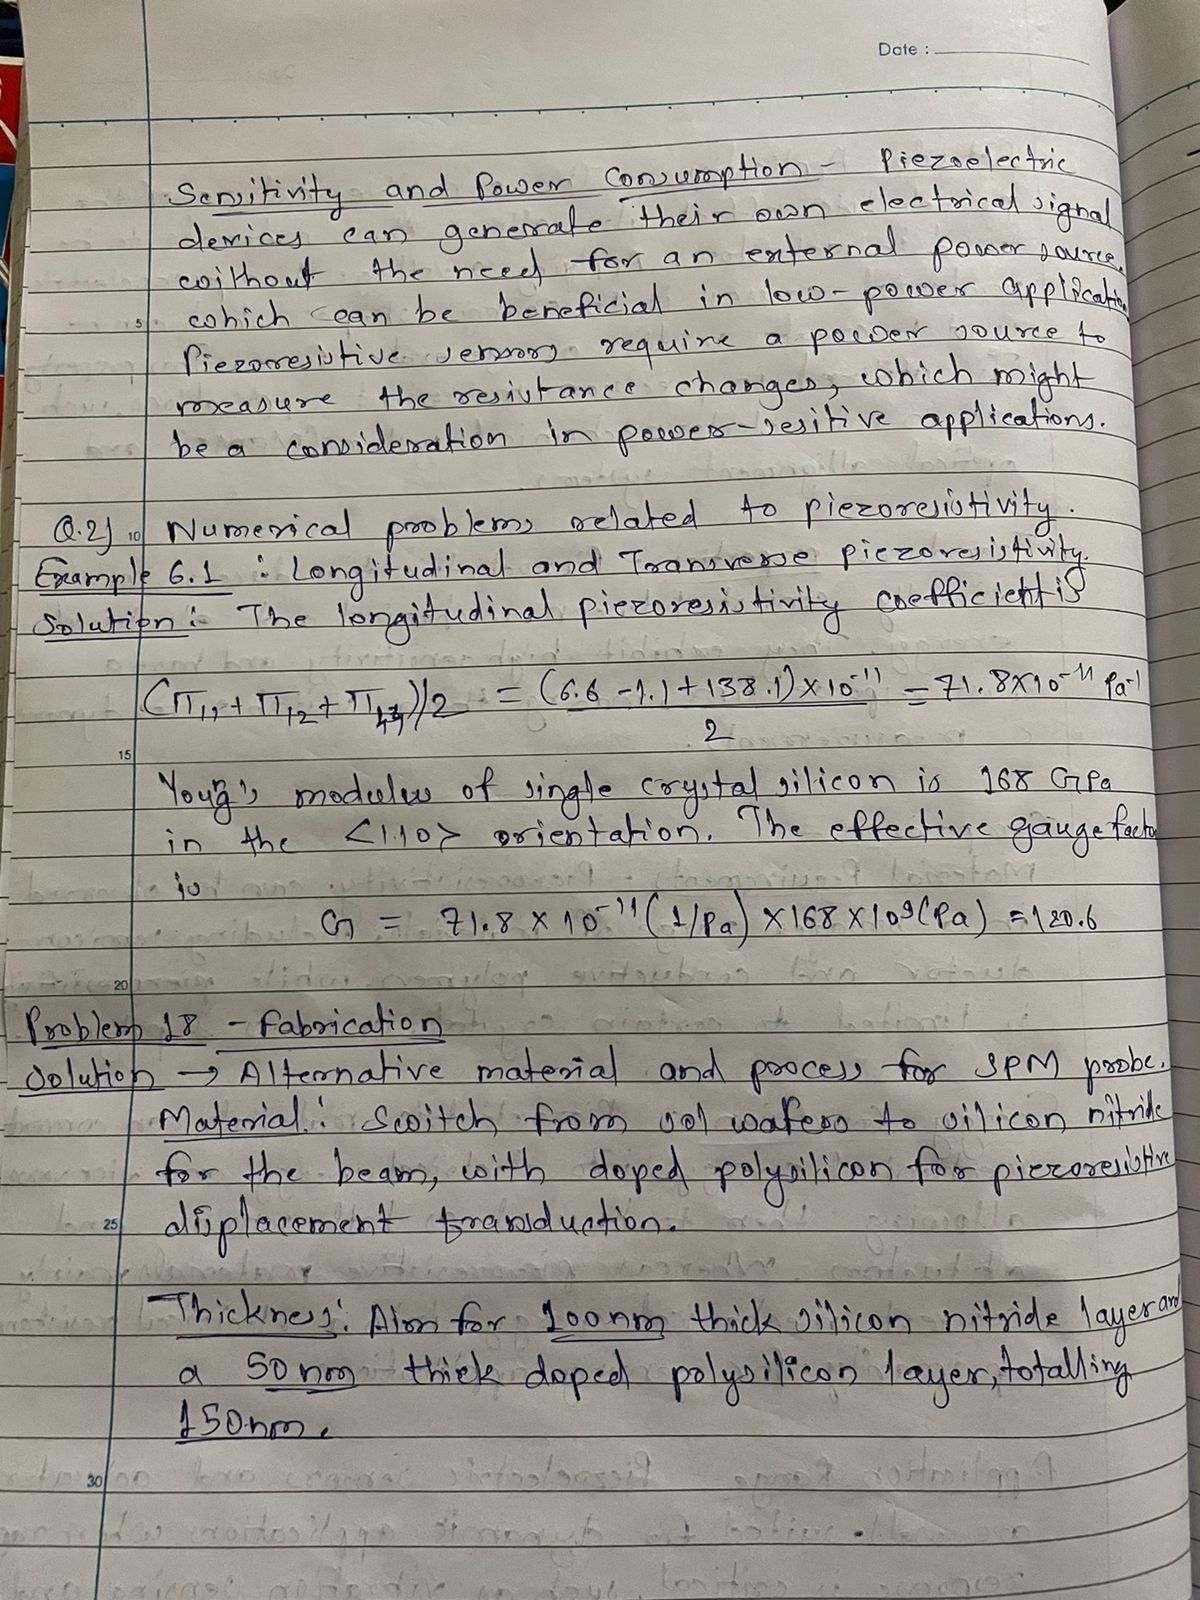 Date :
Sensitivity and Power Consumption - Piezoelectric
devices can generate their own electrical signal
without the need for an external power source,
which can be beneficial in low-power application
5
Piezoresistive sensors require a power source to
measure the resistance changes, which might
be a consideration in power-sesitive applications.
Q.2) 10 Numerical problems related to piezoresistivity.
Example 6.1 : Longitudinal and Transverse piezoresistivity.
Solution : The longitudinal piezoresistivity coefficient is
(π11 + π12 + π44)/2 = (6.6 - 1.1 + 138.1) × 10^-11 / 2 = 71.8 × 10^-11 Pa^-1
15
Young's modulus of single crystal silicon is 168 GPa
in the <110> orientation. The effective gauge facto
is
G = 71.8 × 10^-11 (1/Pa) × 168 × 10^9 (Pa) = 120.6
20
Problem 18 - Fabrication
Solution → Alternative material and process for SPM probe.
Material : Switch from SOI wafers to silicon nitride
for the beam, with doped polysilicon for piezoresistive
25 displacement transduction.
Thickness : Aim for 100nm thick silicon nitride layer and
a 50 nm thick doped polysilicon layer, totalling
150nm.
30